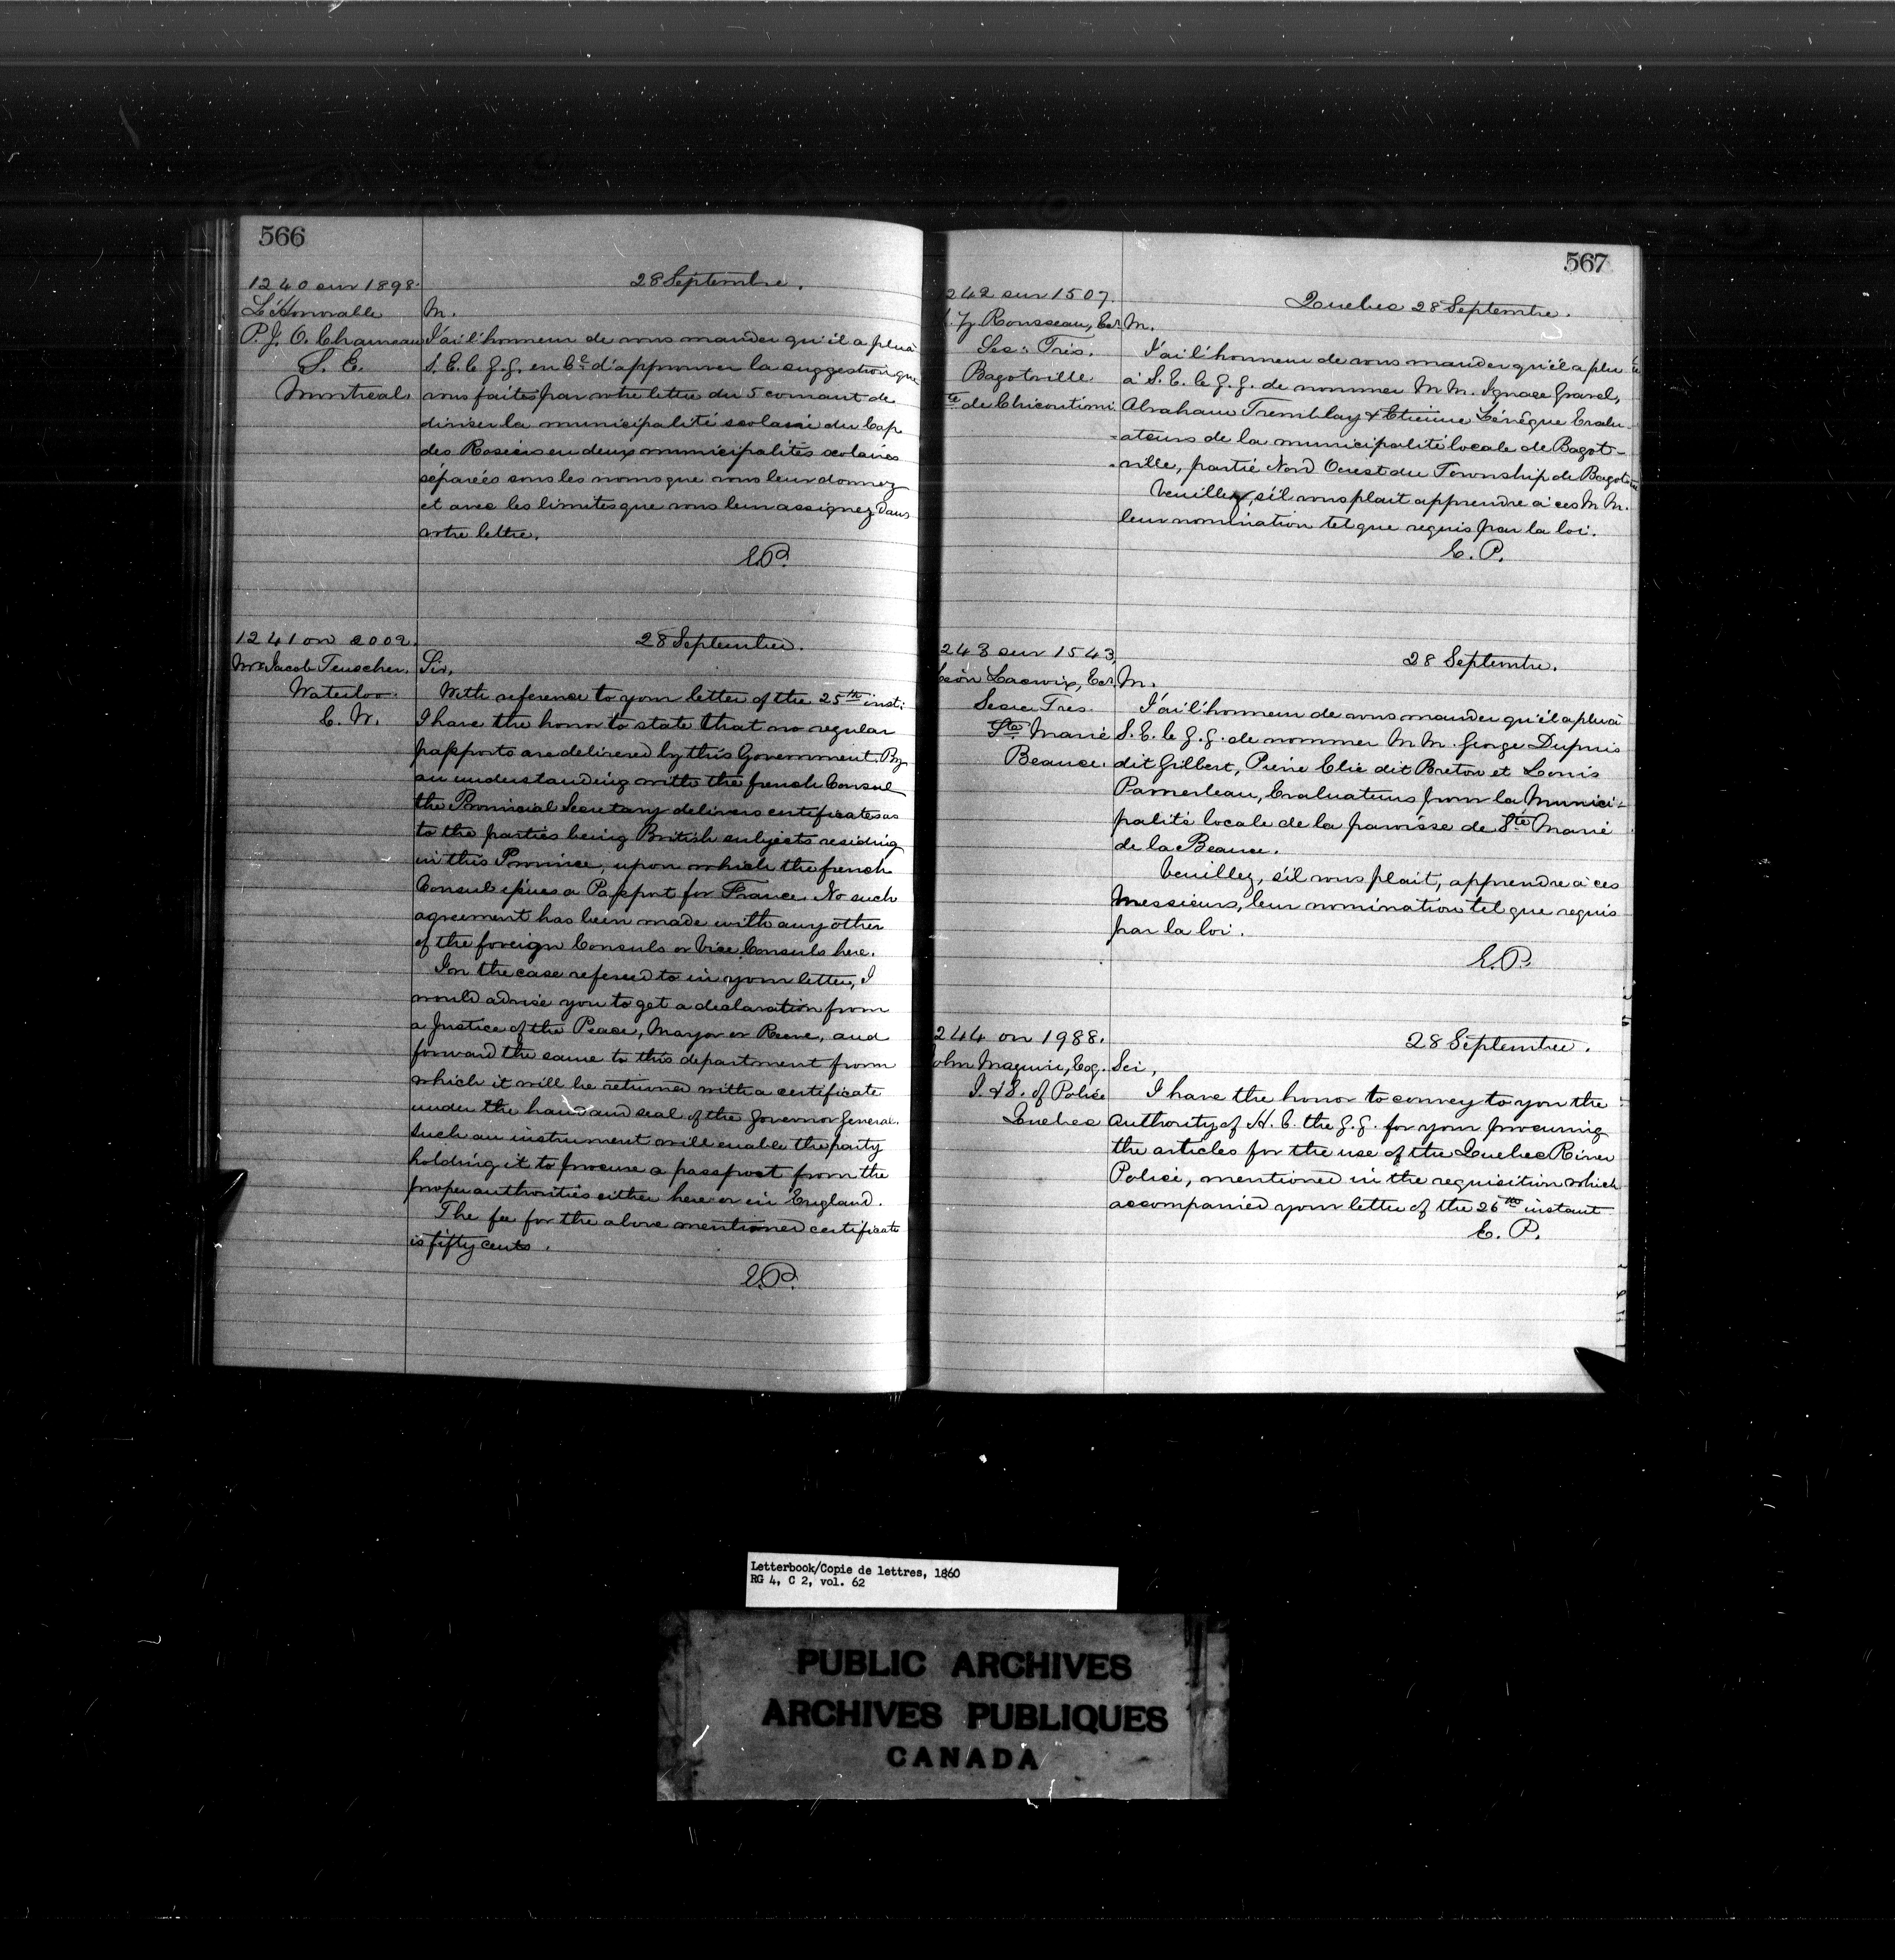 566
1240 sur 1898.
28 Septembre.
L'Honorable
P. J. O. Chauveau
S. E.
Montreal.
M.
J'ai l'honneur de vous mander qu'il a plu à
S. E. le G. G. en C.l d'approuver la suggestion que
vous faites par votre lettre du 5 courant de
diviser la municipalité scolaire du Cap
des Rosiers en deux municipalités scolaires
séparées sous les noms que vous leur donnez
et avec les limites que vous leur assignez dans
votre lettre.
E.P.
1241 on 2002.
28 September.
Mr. Jacob Teuscher.
Waterloo.
C. W.
Sir,
With reference to your letter of the 25th inst:
I have the honor to state that no regular
passports are delivered by this Government. By
an understanding with the french Consul
the Provincial Secretary delivers certificates as
to the parties being British subjects residing
in this Province, upon which the french
Consul issues a Passport for France. No such
agreement has been made with any other
of the foreign Consuls or Vice Consuls here.
In the case refered to in your letter, I
would advise you to get a declaration from
a Justice of the Peace, Mayor or Reeve, and
forward the same to this department from
which it will be returned with a certificate
under the hand and seal of the Governor General.
Such an instrument will enable the party
holding it to procure a passport from the
proper authorities either here or in England.
The fee for the above mentioned certificate
is fifty cents.
E.P.
567
242 sur 1507.
Quebec 28 Septembre.
Rousseau, Ecr.
Sec: Trés.
Bagotville
de Chicoutimi.
M.
J'ai l'honneur de vous mander qu'il a plu
à S. E. le G. G. de nommer M M. Ignace Gravel,
Abraham Tremblay & Etienne Lévêque Evalu-
-ateurs de la municipalité locale de Bagot-
-ville, partie Nord Ouest du Township de Bagot
Veuillez, s'il vous plait apprendre à ces M M.
leur nomination tel que requis par la loi.
E. P.
243 sur 1543,
28 Septembre.
Léon Lacroix, Ecr.
Secre Tres.
Ste Marie
Beauce.
M.
J'ai l'honneur de vous mander qu'il a plu à
S. E. le G. G. de nommer M M. George Dupuis
dit Gilbert, Pierre Elie dit Breton et Louis
Parmerleau, Evaluateurs pour la Munici-
palité locale de la paroisse de Ste Marie
de la Beauce.
Veuillez, s'il vous plait, apprendre à ces
Messieurs, leur nomination tel que requis
par la loi.
E.P.
244 on 1988.
28 September.
John Maguire, Esq.
I. & S. of Police
Quebec
Sir,
I have the honor to convey to you the
Authority of H. E. the G. G. for your procuring
the articles for the use of the Quebec River
Police, mentioned in the requisition which
accompanied your letter of the 26th instant
E. P.
Letterbook/Copie de lettres, 1860
RG 4, C 2, vol. 62
PUBLIC ARCHIVES
ARCHIVES PUBLIQUES
CANADA